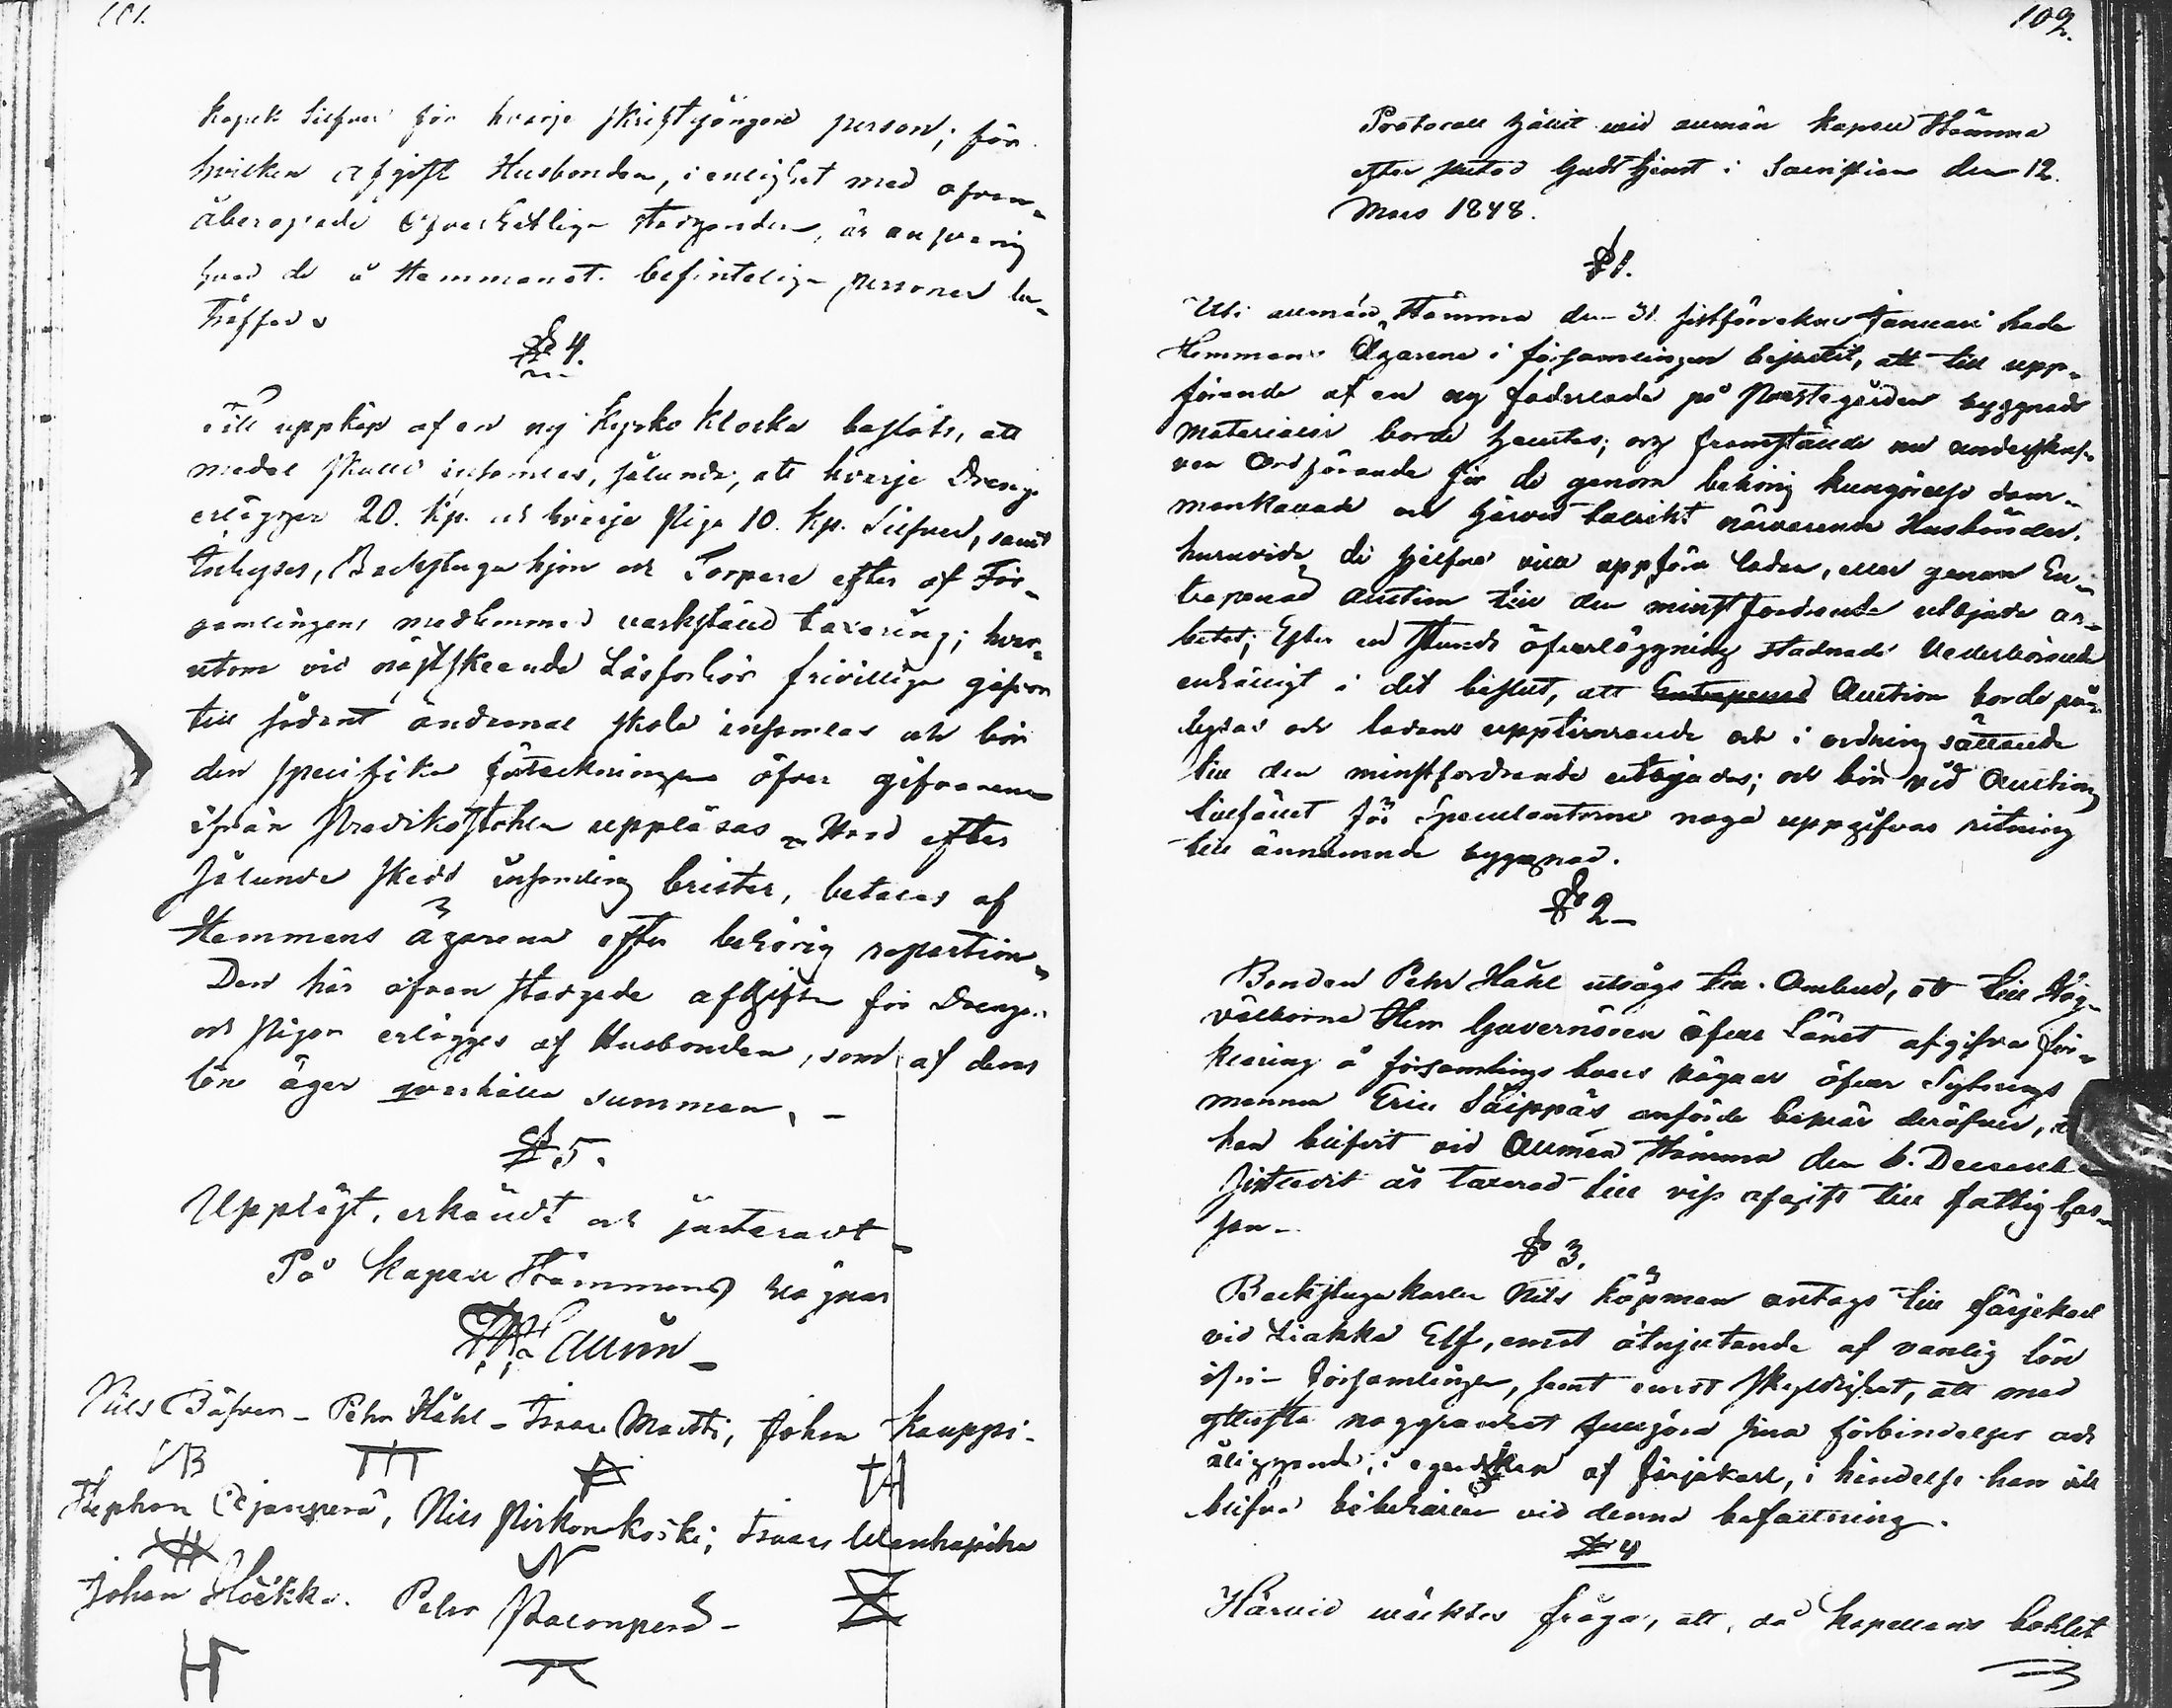 101.
kopek Silfver för hvarje skriftgången person; för
hvilken afgift Husbonden, i enlighet med ofvan-
åberopade Öfverhetliga stadganden, är ansvarig
hvad de å Hemmanet befinteliga personer be-
träffar
§ 4.
Till uppköp af en ny Kyrko Klocka beslöts, att
medel skulle insamlas, sålunda, att hvarje Dreng
erlägger 20. kp. och hvarje Piga 10. kp. Silfver, samt
Inhyses, Backstuguhjon och Torpare efter af För-
samlingens medlemmar verkställd taxering; hvar-
utom vid nästskeende Läsförhör frivilliga gåfvor
till sådant ändamål skola insamlas och bör
den specifika förteckningen öfver gifvarena
ifrån Predikostolen uppläsas. Hvad efter
sålunda skedd insamling brister, betalas af
Hemmans Ägarena efter behörig repartion.
Den här ofvan stadgade afgiften för Drengar
och Pigor erlägges af Husbonden, som af deras
lön äger qvarhålla summan. -
§ 5.
Uppläst, erkändt och justeradt
På Kapell Stämmans vägnar
Nils Bäfver - Pehr Håhl - Isaac Martti, Johan Kauppi.
NB
Stephan Ojanperä, Nils Pirkonkoski; Isaac Wanhapiha
N
Johan Höckkä. Pehr Paconperä -
H
102.
Protocoll hållit vid allmän Kapell Stämma
efter slutad Gudstjenst i Sacristian den 12.
Mars 1848.
§ 1.
Uti allmän Stämma den 31. sistförvekne Januari hade
Hemmans Ägarene i församlingen beslutit, att till upp-
förande af en ny foderlada på Prestegården byggnads
materialier borde hemtas; och framställde nu underskref-
ven Ordförande för de genom behörig kungörelse sam-
mankallade och härvid talrikt närvarande Husbönder,
huruvida de sjelfva vilja uppföra ladan, eller genom En-
trepenad Auction till den minstfordrande utbjuda ar-
betet; Efter en stunds öfverläggning stadnade Vederbörande
enhälligt i det beslut, att Entrepenad Auction borde på-
lysas och ladans upptimrande och i ordning sättande
till den minstfordrande utbjudas; och bör vid Auctions
tillfället för Speculanterne noga uppgifvas ritning
till ännämnde byggnad.
§ 2 -
Bonden Pehr Håhl utsågs till Ombud, att till Hög-
välborne Herr Guvernören öfver Länet afgifva för-
klaring å församlings boers vägnar öfver Sytnings
mannen Eric Säippäs anförde besvär deröfver, att
han blifvit vid Allmän Stämma den 6. December
sistledit år taxerad till viss afgift till fattig kas-
san -
§ 3.
Backstugu karlen Nils Köpman antogs till Färjekarl
vid Liakka Elf, emot åtnjutande af vanlig lön
ifrån församlingen, samt emot skyldighet, att med
yttersta noggranhet fullgöra sina förbindelser och
åligganden, i egenskap af färjekarl, i händelse han vill
blifva bibehållen vid denna befattning.
§ 4
Härvid väcktes fråga, att, då kapellans bohlet